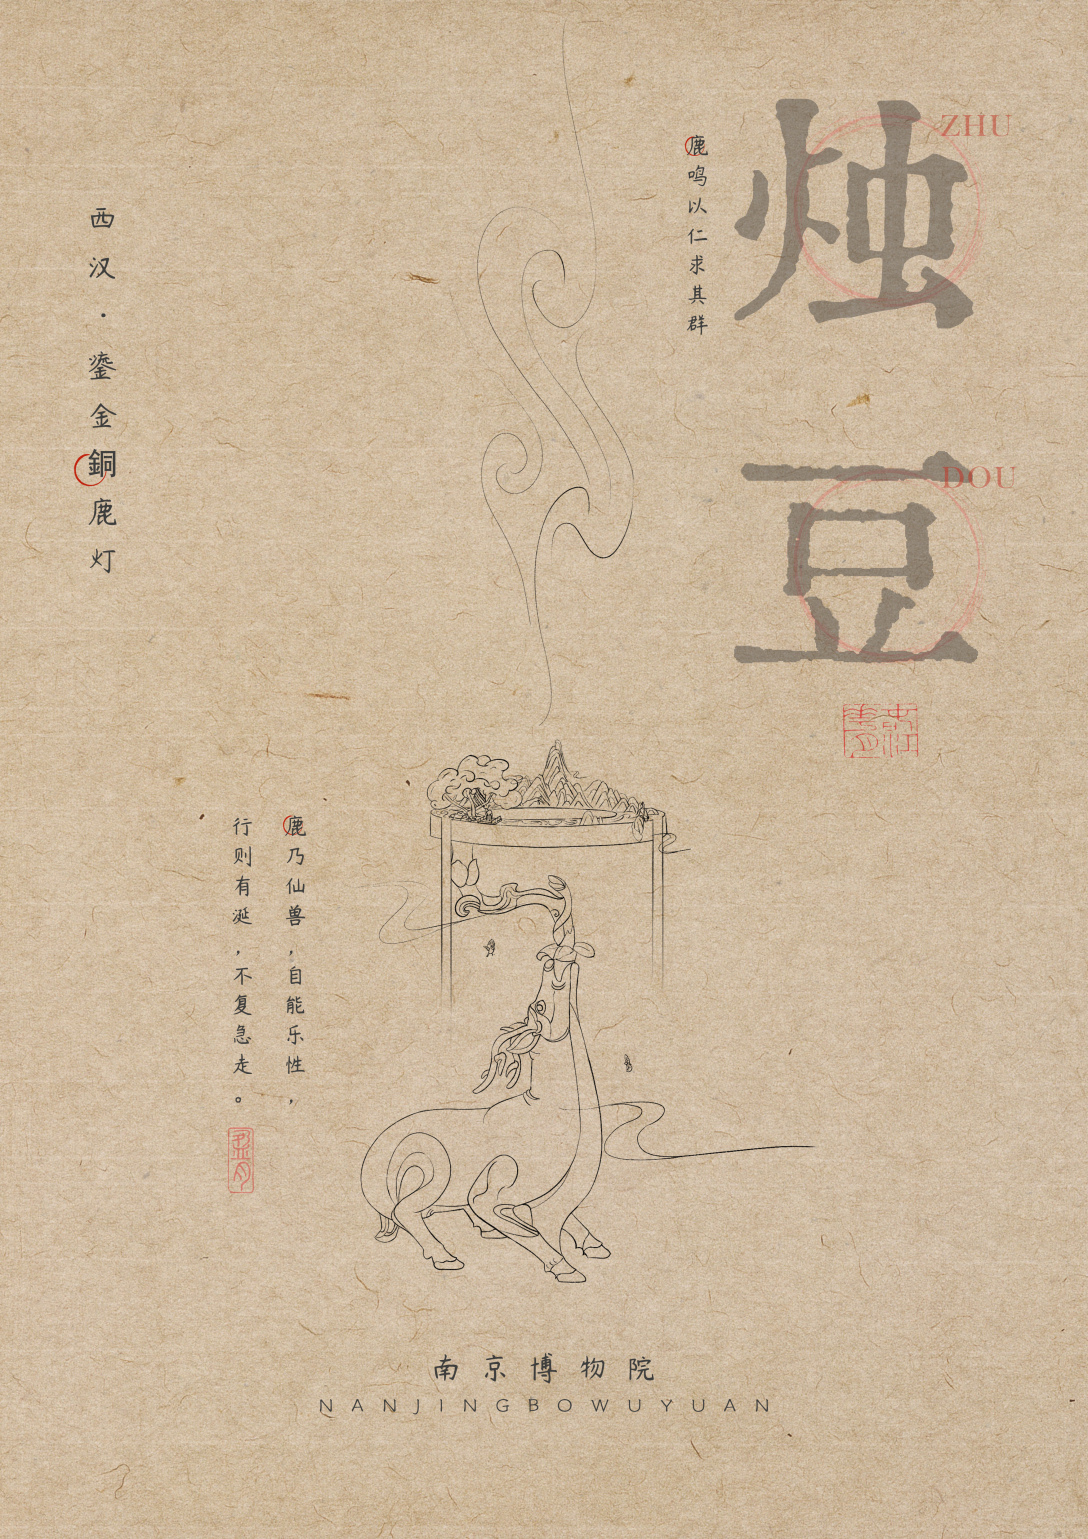 烛豆
ZHU
DOU
鹿鸣以仁求其群
西汉·鎏金銅鹿灯
鹿乃仙兽，自能乐性，
行则有涎，不复急走。
南京博物院
NANJINGBOWUYUAN